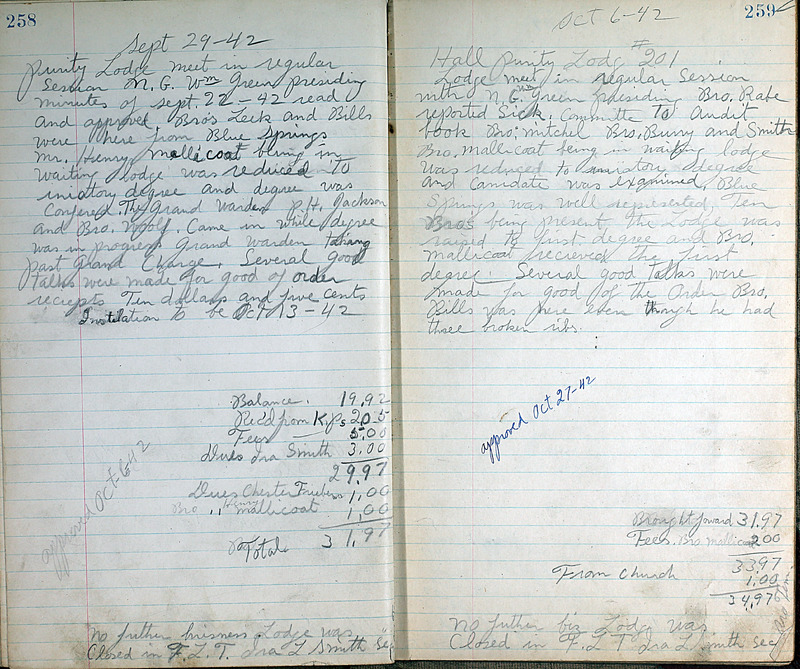 258
Sept 29-42
Purity Lodge meet in regular
Session N. G. Wm Green presiding
minutes of sept. 22-42 read
and approved. Bro's Leek and Bills
were here from Blue Springs
Mr. Henry Mallicoat being in
waiting Lodge was reduced to
iniatory degree and degree was
Confered. The Grand Warden P. H. Jackson
and Bro. Woolf. Came in while degree
was in progress Grand Warden
past Grand Charge. Several good
talks were made for good of order
reciepts Ten dollars and five cents
Instilation to be Oct 13-42
Balance. 19.92
Rec'd from K. Ps 2 0 5
Fees 5.00
Dues Ira Smith 3.00
29.97
Dues Chester 1.00
Bro. " Henry Mallicoat 1.00
Totale 31.97
approved Oct-6-42
No futher buisness Lodge was
Closed in F. L. T. Ira L Smith Sec
259
Oct 6-42
Hall Purity Lodg #201
Lodge meet in regular Session
with N. G. Wm Green presiding Bro. Rabe
reported Sick. Committe To Audit
book Bro. Mitchel Bro. Burry and Smith
Bro. Mallicoat being in waiting lodge
was reduced to iniatory degree
and Canidate was examined. Blue
Springs was well represented. Ten
Bros being present the Lodge was
raised to first degree and Bro.
Mallicoat recieved the first
degree. Several good talks were
made for good of the Order Bro.
Bills was here even though he had
three broken ribs.
approved Oct 27-42
Brought foward 31.97
Fees. Bro Mallicoat 2.00
33.97
From Church 1.00
34.97
No futher biz Lodge was
Closed in F. L. T Ira L. Smith Sec